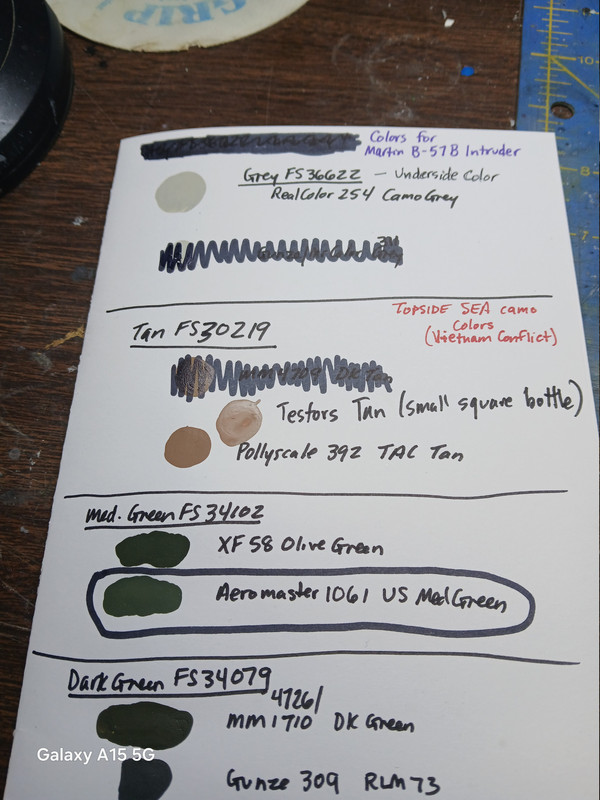 GRIP
Colors for
Martin B-57B Intruder
Grey FS36622 — Underside Color
RealColor 254 Camo Grey
Tan FS30219
TOPSIDE SEA camo
Colors
(Vietnam Conflict)
DK Tan
Testors Tan (small square bottle)
Pollyscale 392 TAC Tan
Med. Green FS34102
XF 58 Olive Green
Aeromaster 1061 US Med Green
Dark Green FS34079
4726/
MM 1710 DK Green
Gunze 309 RLM 73
Galaxy A15 5G